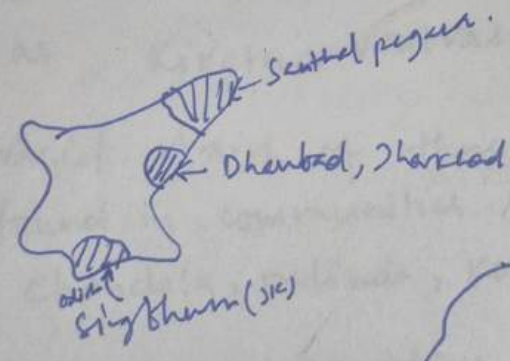 Santhal pargana.
Dhanbad, Jharkhand
Singbhum (JK)